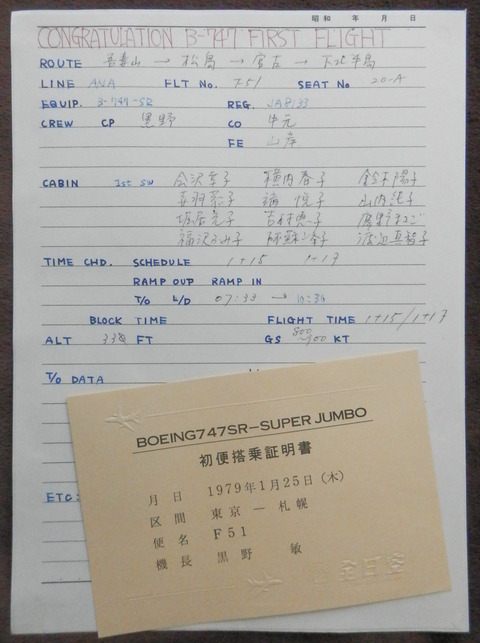 昭和 年 月 日
CONGRATULATION B-747 FIRST FLIGHT
ROUTE → 松島 → 宮古 → 下北半島
LINE ANA FLT No. 751 SEAT No 20-A
EQUIP. B-747-SR REG. JA8133
CREW CP 黒野 CO 中元
FE 山岸
CABIN 1st SW 幸子 横内春子 鈴木陽子
悦子 山内純子
吉村
福沢 渡辺真智子
TIME CHD. SCHEDULE 1+15 1+17
RAMP OUP RAMP IN
T/O L/D 07:33 →
BLOCK TIME FLIGHT TIME 1+15/1+17
ALT FT GS KT
T/O DATA
ETC:
BOEING747SR－SUPER JUMBO
初便搭乗証明書
月日 1979年1月25日(木)
区間 東京 ― 札幌
便名 F51
機長 黒野 敏
全日空